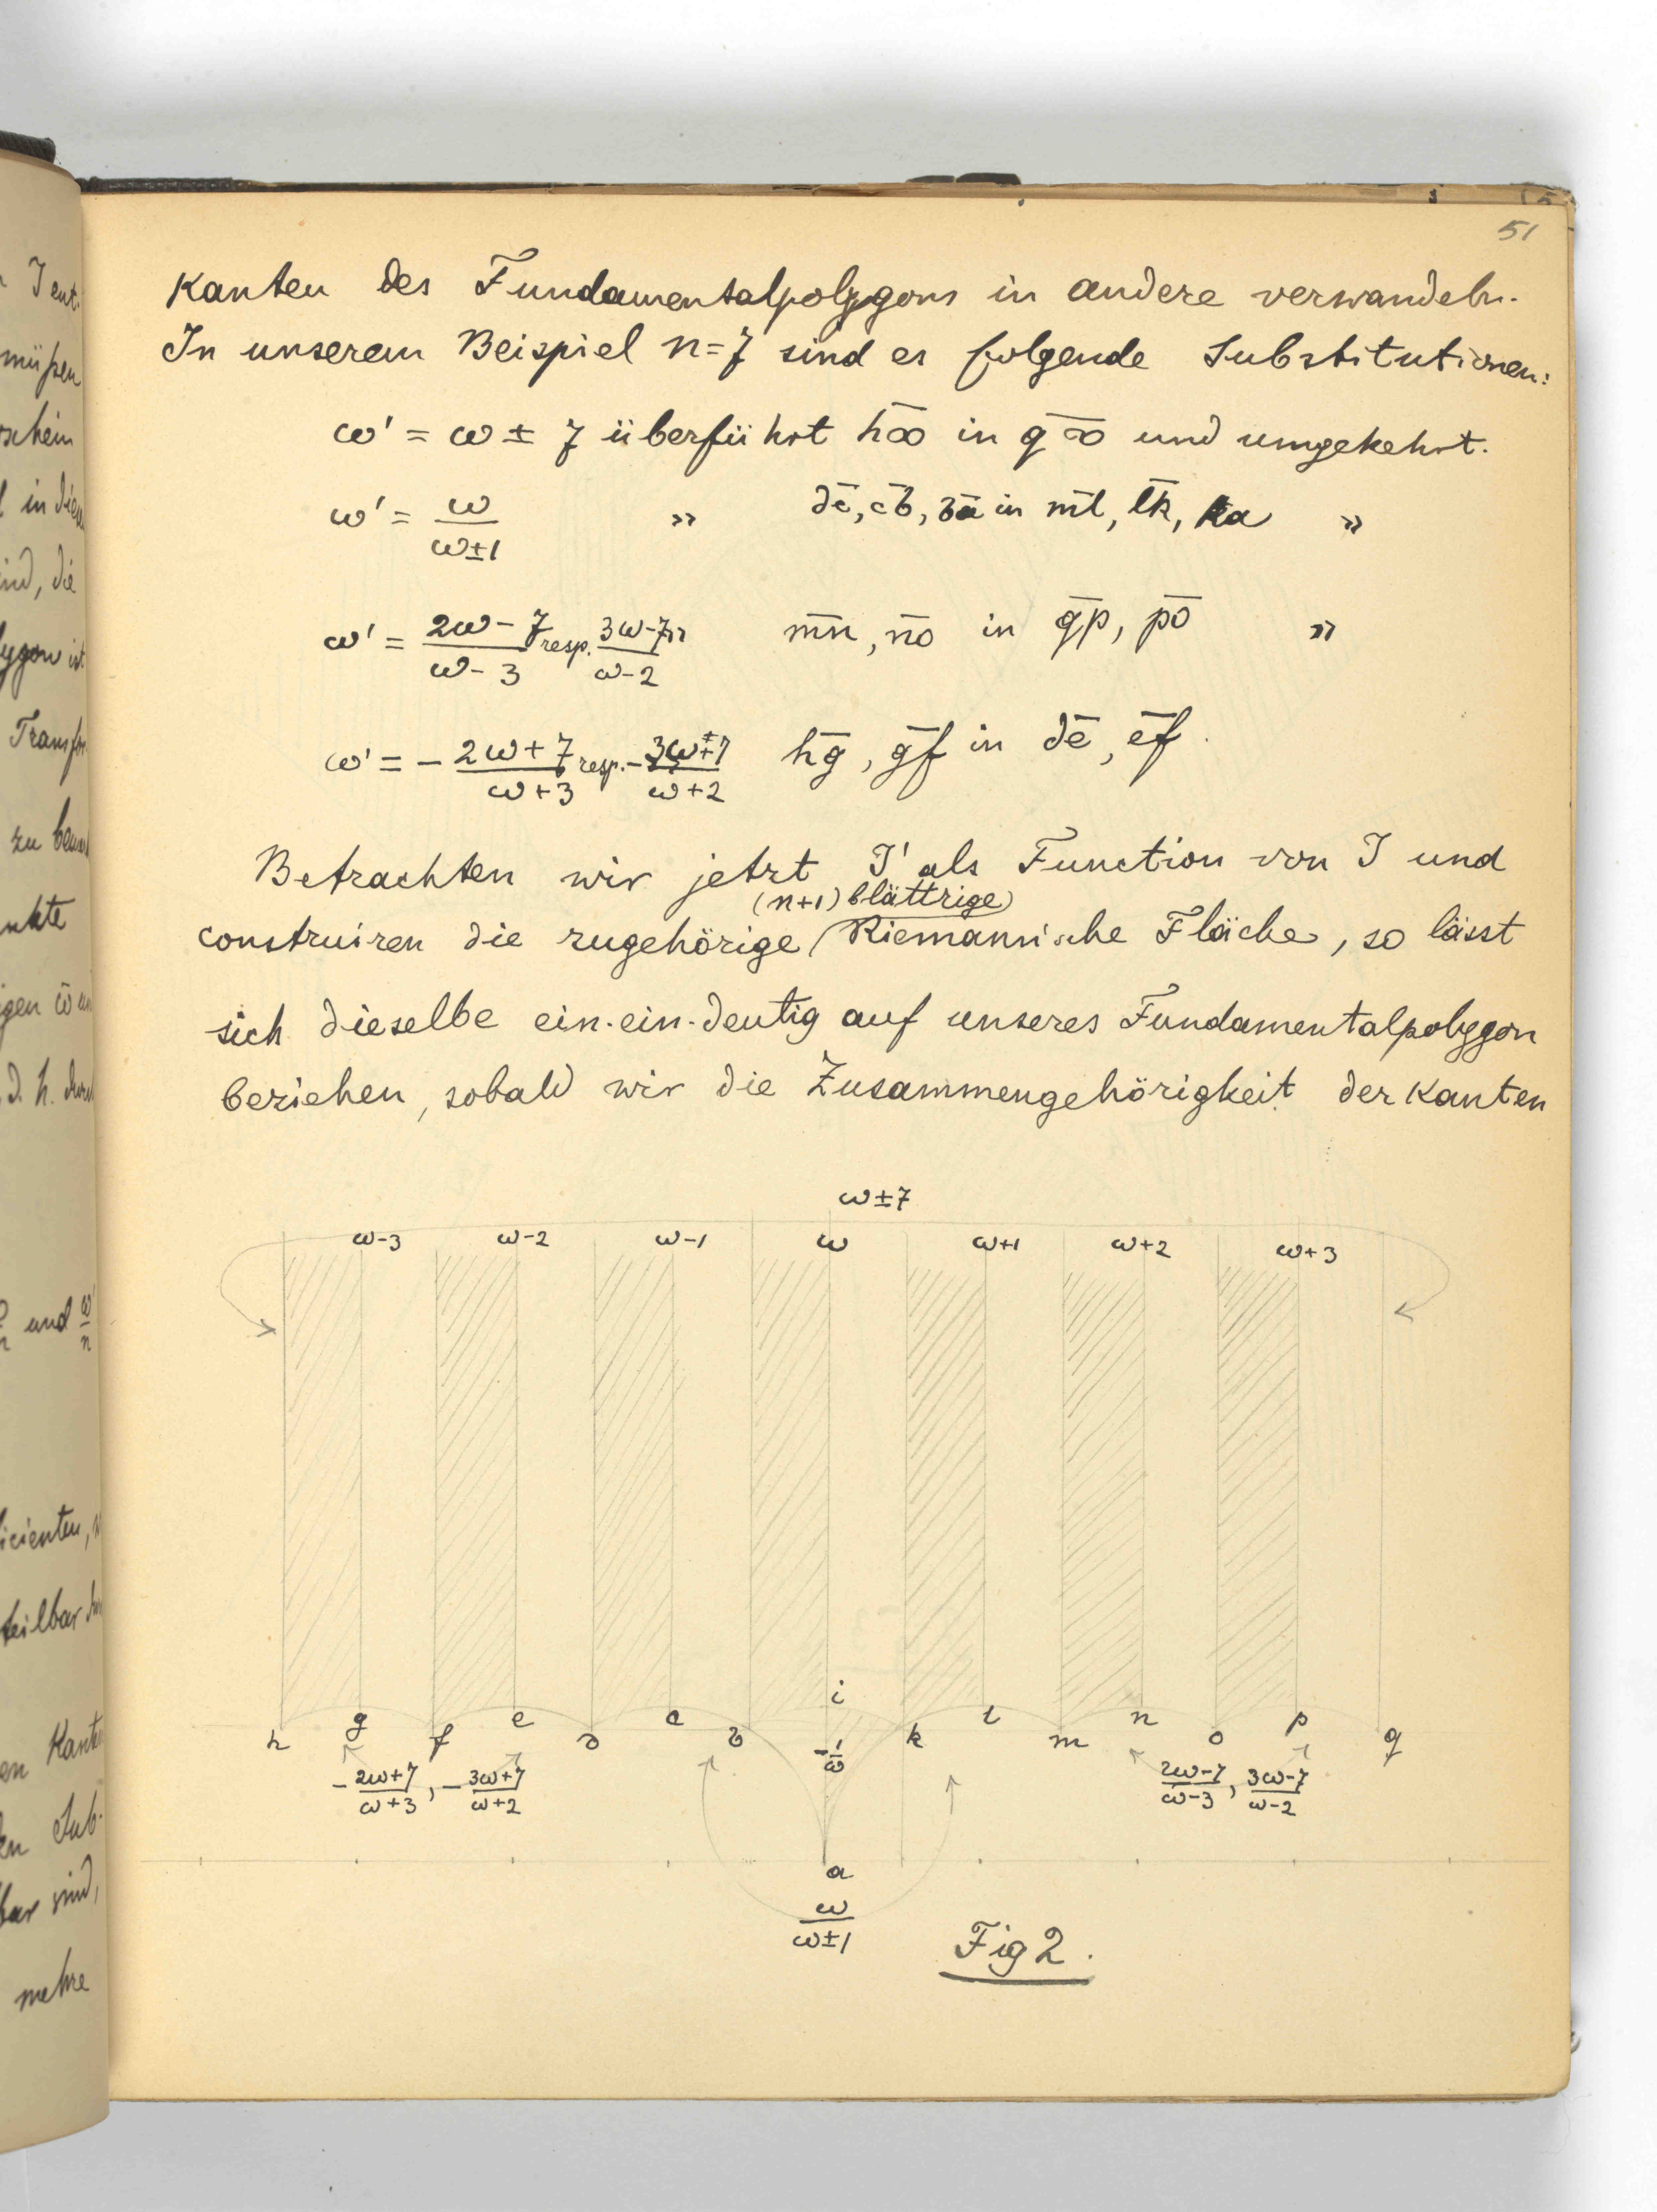 51
Kanten des Fundamentalpolygons in andere verwandeln.
In unserem Beispiel n=7 sind es folgende Substitutionen:
ω' = ω ± 7 überführt h̅∞̅ in q̅∞̅ und umgekehrt.
ω' = ω/(ω±1) „ d̅c̅, c̅b̅, b̅a̅ in m̅l̅, l̅k̅, ka „
ω' = (2ω-7)/(ω-3) resp. (3ω-7)/(ω-2) „ m̅n̅, n̅o̅ in q̅p̅, p̅o̅ „
ω' = - (2ω+7)/(ω+3) resp. - (3ω+7)/(ω+2) h̅g̅, g̅f̅ in d̅e̅, e̅f̅.
Betrachten wir jetzt J' als Function von J und
(n+1) blättrige
construiren die zugehörige Riemannische Fläche, so lässt
sich dieselbe ein-ein-deutig auf unseres Fundamentalpolygon
beziehen, sobald wir die Zusammengehörigkeit der Kanten
ω±7
ω-3 ω-2 ω-1 ω ω+1 ω+2 ω+3
i
h g f e d c b k l m n o p q
-1/ω
- (2ω+7)/(ω+3), - (3ω+7)/(ω+2) (2ω-7)/(ω-3), (3ω-7)/(ω-2)
a
ω/(ω±1)
Fig 2.
J ent.
müßen
Transf
zu
d. h.
und ω/n
teilbar
Sub-
sind,
mehre